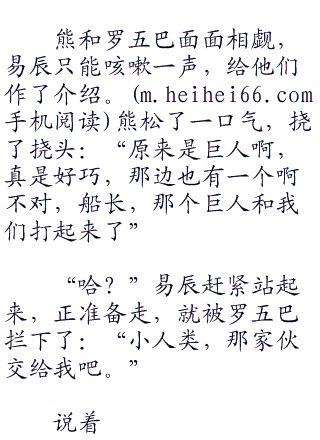 熊和罗五巴面面相觑，
易辰只能咳嗽一声，给他们
作了介绍。(m.heihei66.com
手机阅读)熊松了一口气，挠
了挠头：“原来是巨人啊，
真是好巧，那边也有一个啊
不对，船长，那个巨人和我
们打起来了”
“哈？”易辰赶紧站起
来，正准备走，就被罗五巴
拦下了：“小人类，那家伙
交给我吧。”
说着